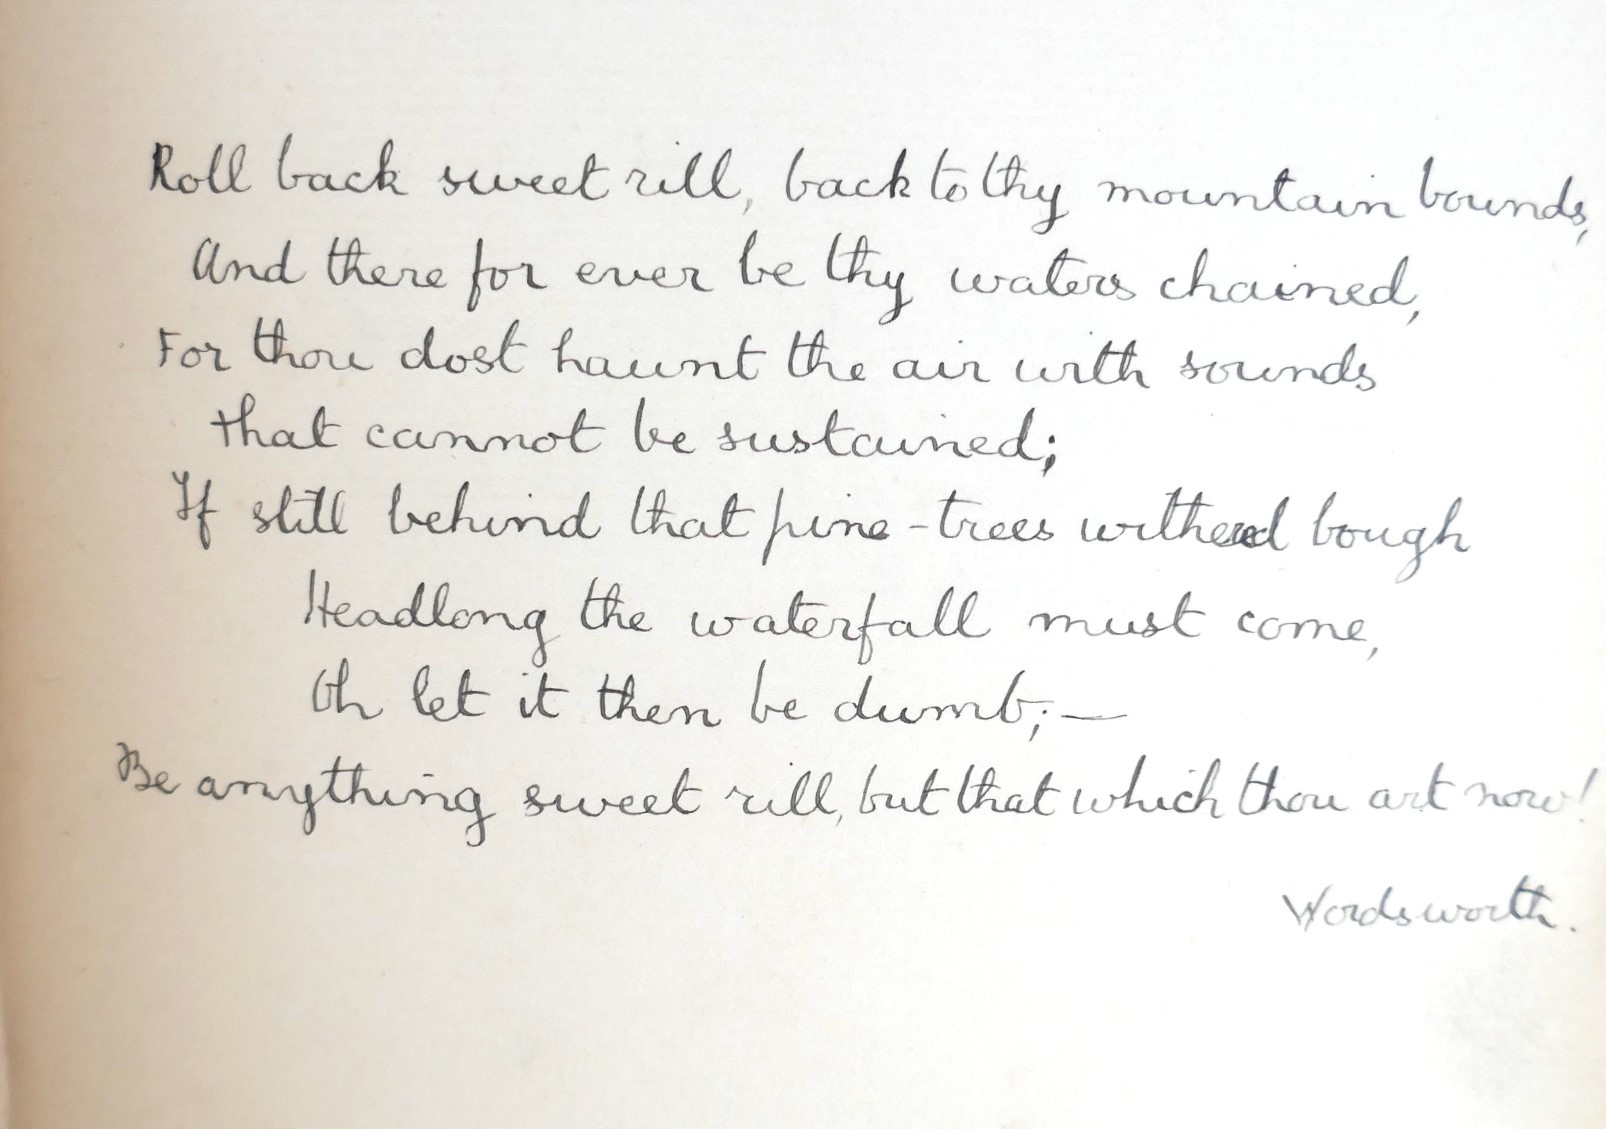 Roll back sweet rill, back to thy mountain bounds,
And there for ever be thy waters chained,
For thou dost haunt the air with sounds
that cannot be sustained;
If still behind that pine-trees withered bough
Headlong the waterfall must come,
Oh let it then be dumb;—
Be anything sweet rill, but that which thou art now!
Wordsworth.